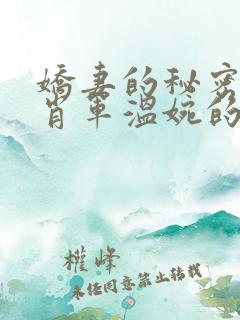 嬌妻的秘密
肖軍溫婉的
權峰
未经同意禁止转载